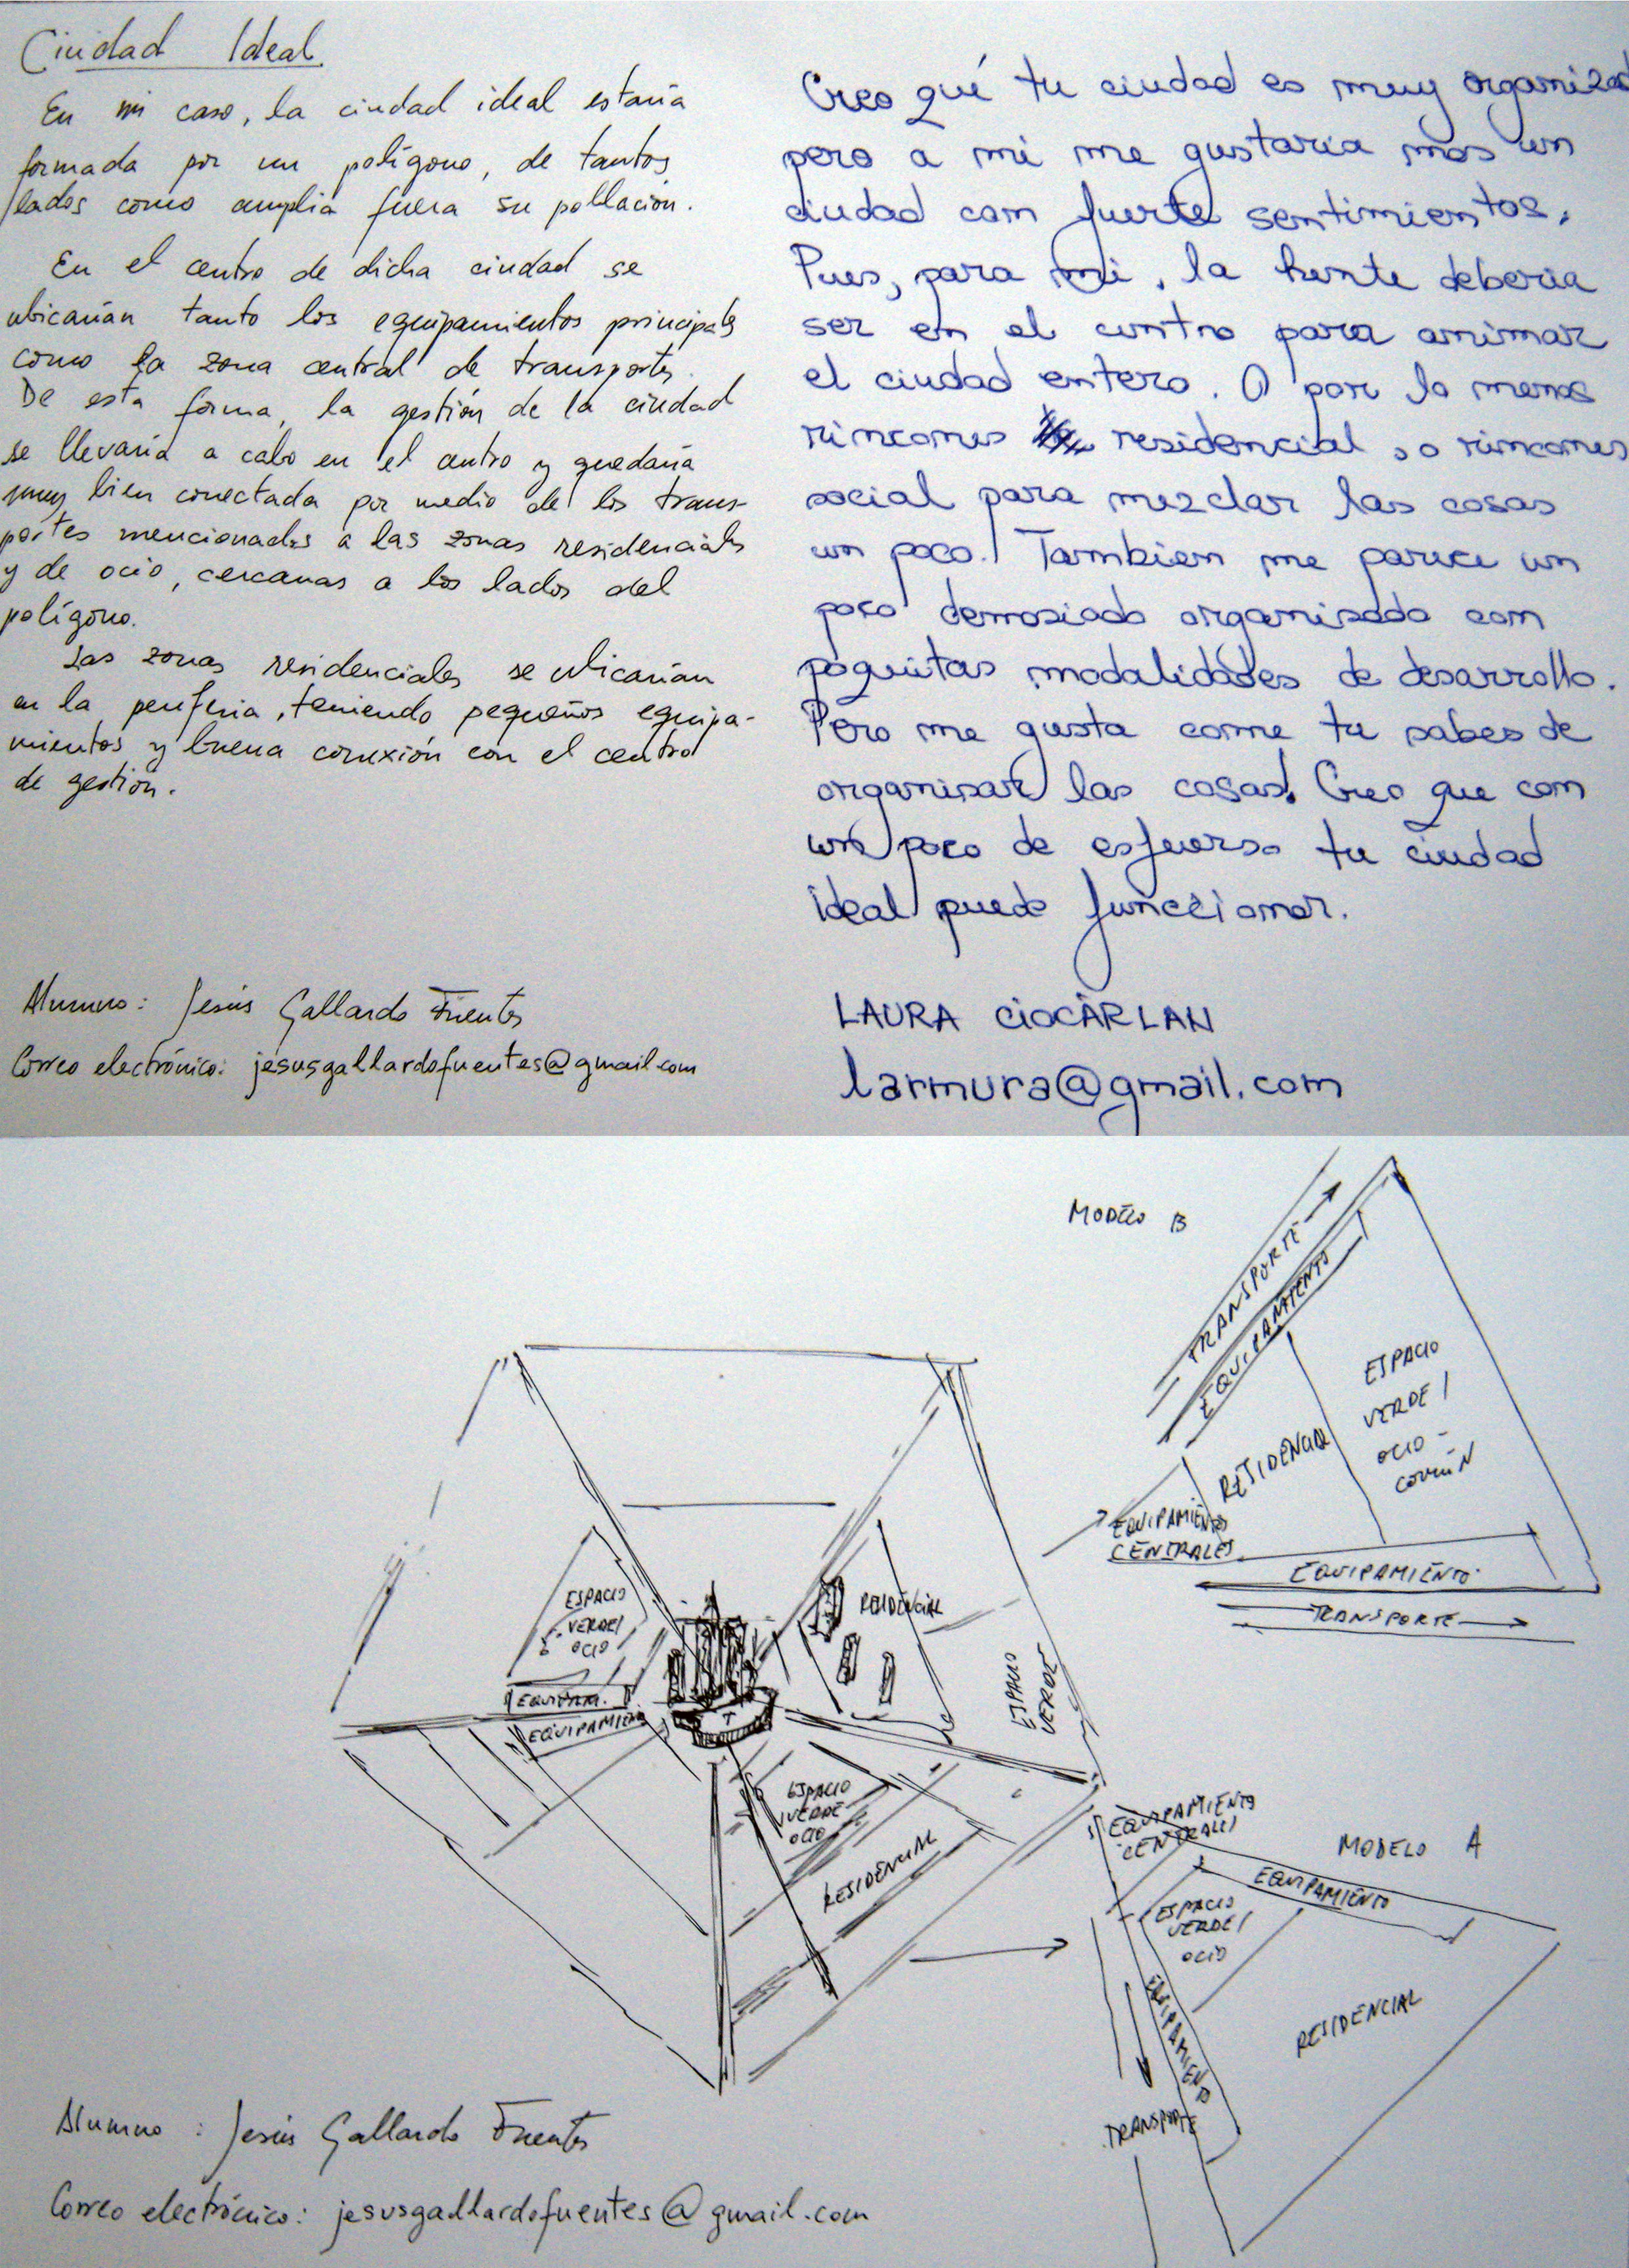 Ciudad Ideal
En mi caso, la ciudad ideal estaría
formada por un polígono, de tantos
lados como amplia fuera su población.
En el centro de dicha ciudad se
ubicarían tanto los equipamientos principales
como la zona central de transportes.
De esta forma, la gestión de la ciudad
se llevaría a cabo en el centro y quedaría
muy bien conectada por medio de los trans-
portes mencionados a las zonas residenciales
y de ocio, cercanas a los lados del
polígono.
Las zonas residenciales se ubicarían
en la periferia, teniendo pequeños equipa-
mientos y buena conexión con el centro
de gestión.
Alumno: Jesús Gallardo Fuentes
Correo electrónico: jesusgallardofuentes@gmail.com
Creo qué tu ciudad es muy organizad
pero a mi me gustaria mas un
ciudad com fuerte sentimientos.
Pues, para mi, la hente deberia
ser en el centro para animar
el ciudad entero. O por lo menos
rincones residencial, o rincones
social para mezclar las cosas
un poco. Tambien me parece un
poco demasiado organisado com
poquitas modalidades de desarrollo.
Pero me gusta come tu sabes de
organisar las cosas. Creo que com
un poco de esfuerso tu ciudad
ideal puede funccionar.
LAURA CIOCÂRLAN
larmura@gmail.com
MODELO B
TRANSPORTE
EQUIPAMIENTO
ESPACIO
VERDE /
OCIO -
COMÚN
RESIDENCIAL
EQUIPAMIENTOS
CENTRALES
EQUIPAMIENTO
TRANSPORTE
ESPACIO
VERDE/
OCIO
RESIDENCIAL
EQUIPAM.
EQUIPAMIENTO
T
ESPACIO
VERDE
ESPACIO
VERDE
OCIO
RESIDENCIAL
EQUIPAMIENTO
CENTRALES
MODELO A
EQUIPAMIENTO
ESPACIO
VERDE/
OCIO
EQUIPAMIENTO
RESIDENCIAL
TRANSPORTE
Alumno: Jesús Gallardo Fuentes
Correo electrónico: jesusgallardofuentes@gmail.com